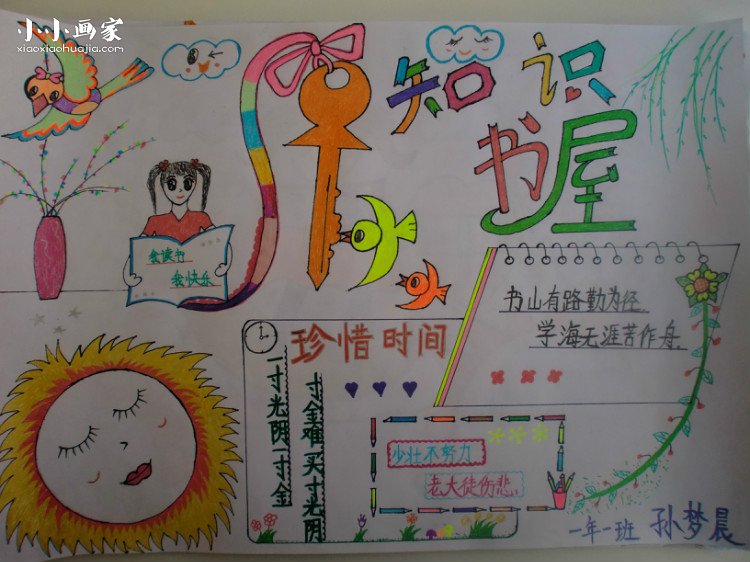 小小画家
xiaoxiaohuajia.com
知识
书屋
会读书
我快乐
书山有路勤为径
学海无涯苦作舟
珍惜时间
一寸光阴一寸金
寸金难买寸光阴
少壮不努力
老大徒伤悲
一年一班 孙梦晨